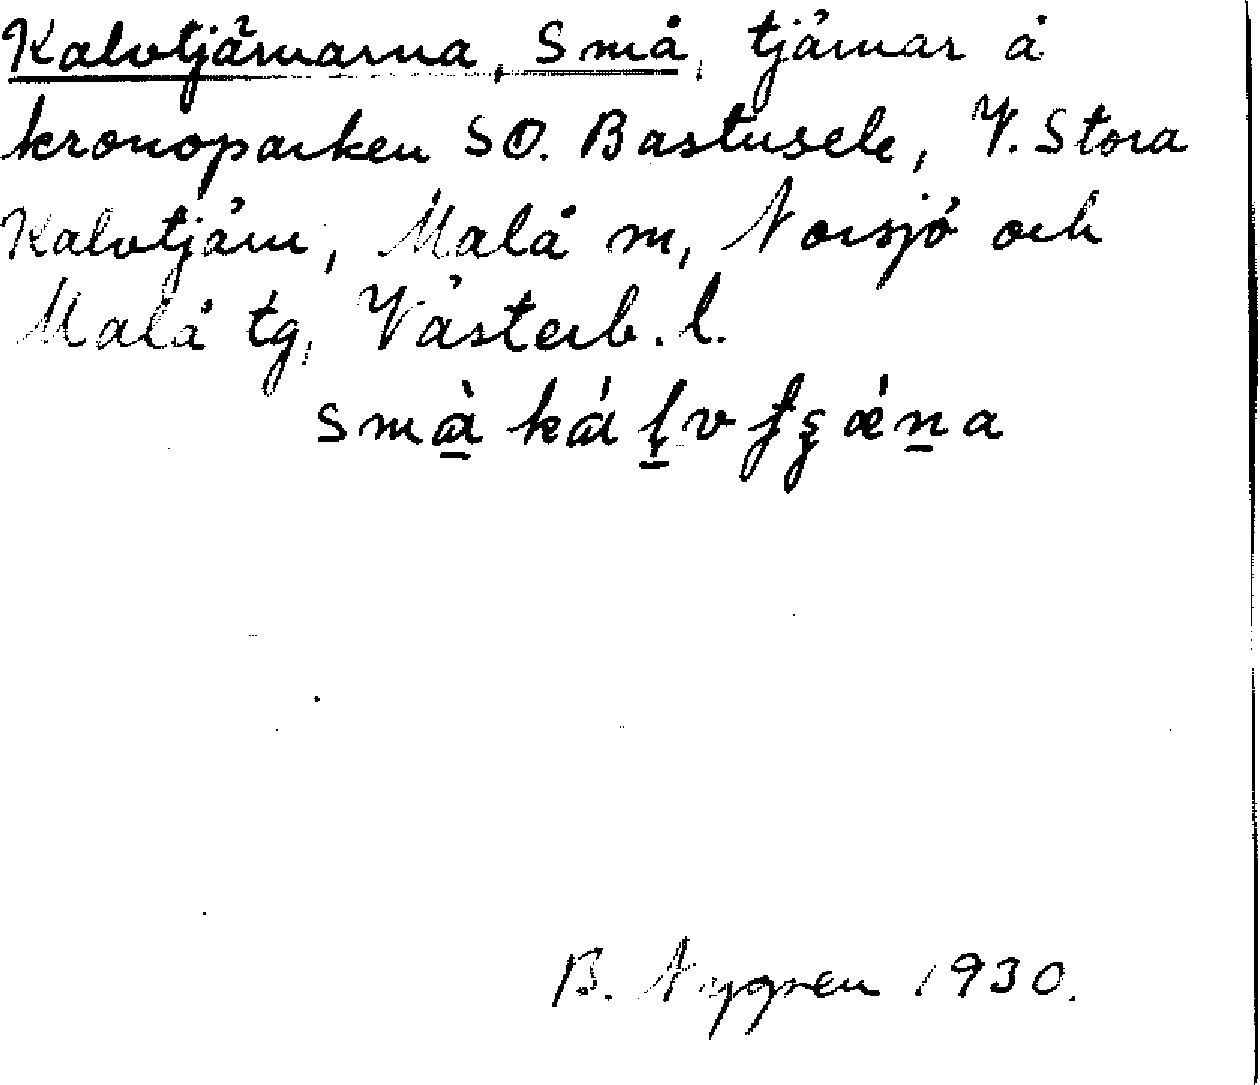 Kalvtjärnarna, Små, tjärnar å
kronoparken SO. Bastusele, V. Stora
Kalvtjärn, Malå sn, Norsjö och
Malå tg, Västerb. l.
B. Nygren 1930.